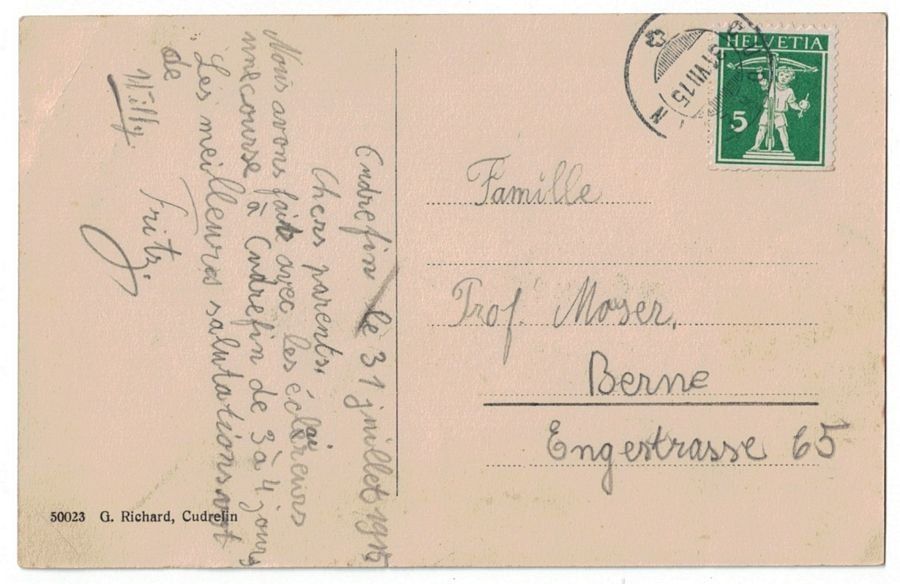 Cudrefin le 31 juillet 1915
Chers parents,
Nous avons fait avec les éclaireurs
une course à Cudrefin de 3 à 4 jours
Les meilleures salutations
de
Willy.
Fritz.
50023 G. Richard, Cudrefin
HELVETIA
5
31 VII 15
Famille
Prof. Moser.
Berne
Engestrasse 65